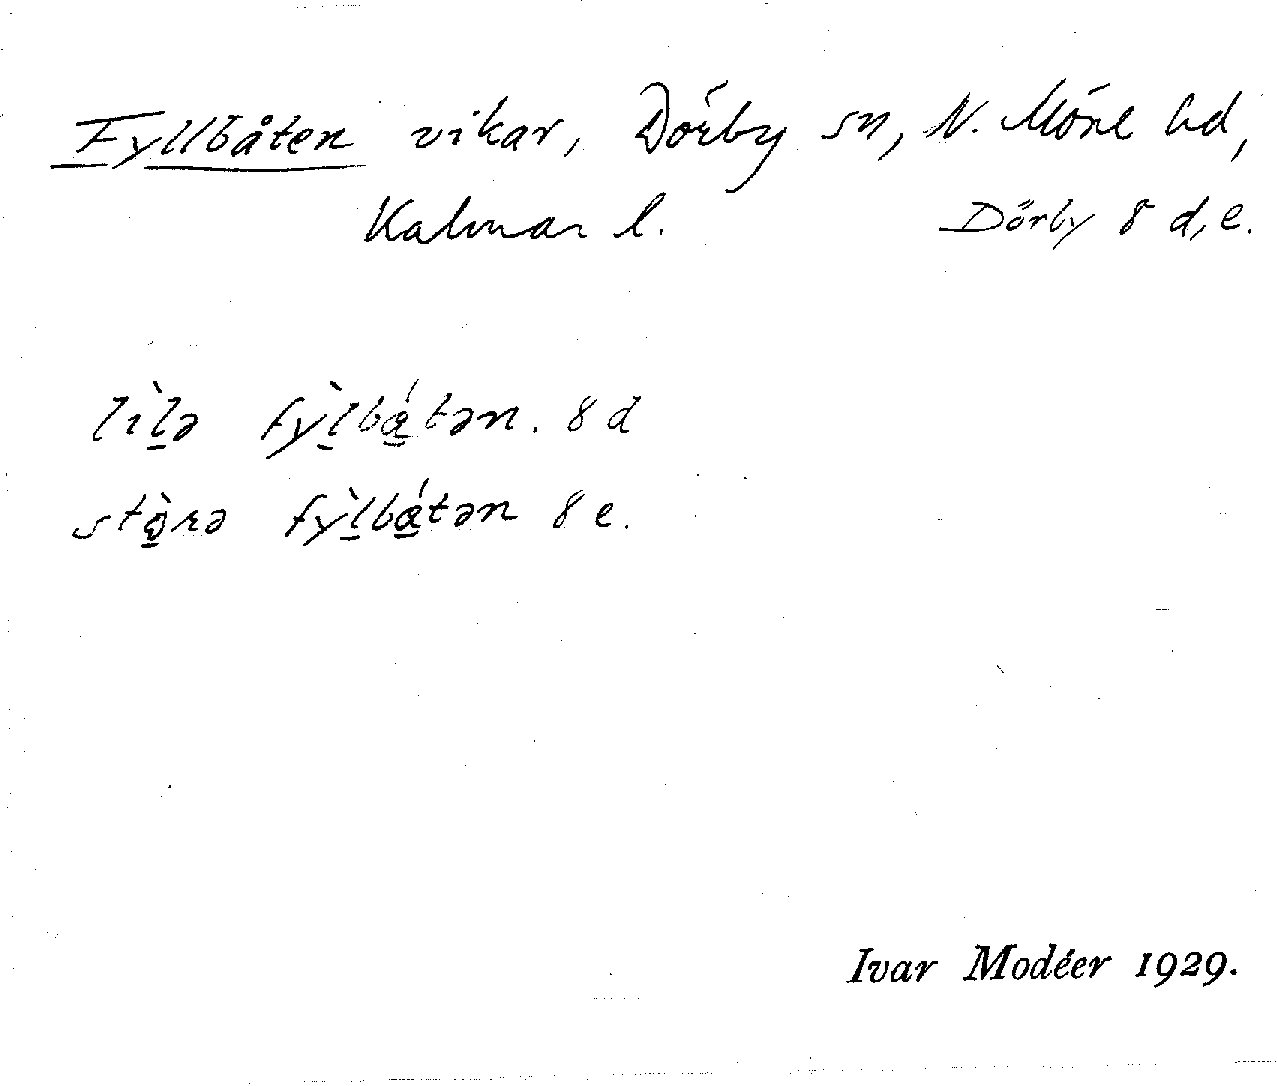 Fyllbåten vikar, Dörby sn, N. Möre hd,
Kalmar l. Dörby 8 d, e.
lìl̲ə fỳl̲bá̲tən. 8 d
stò̲rə fỳl̲bá̲tən 8 e.
Ivar Modéer 1929.